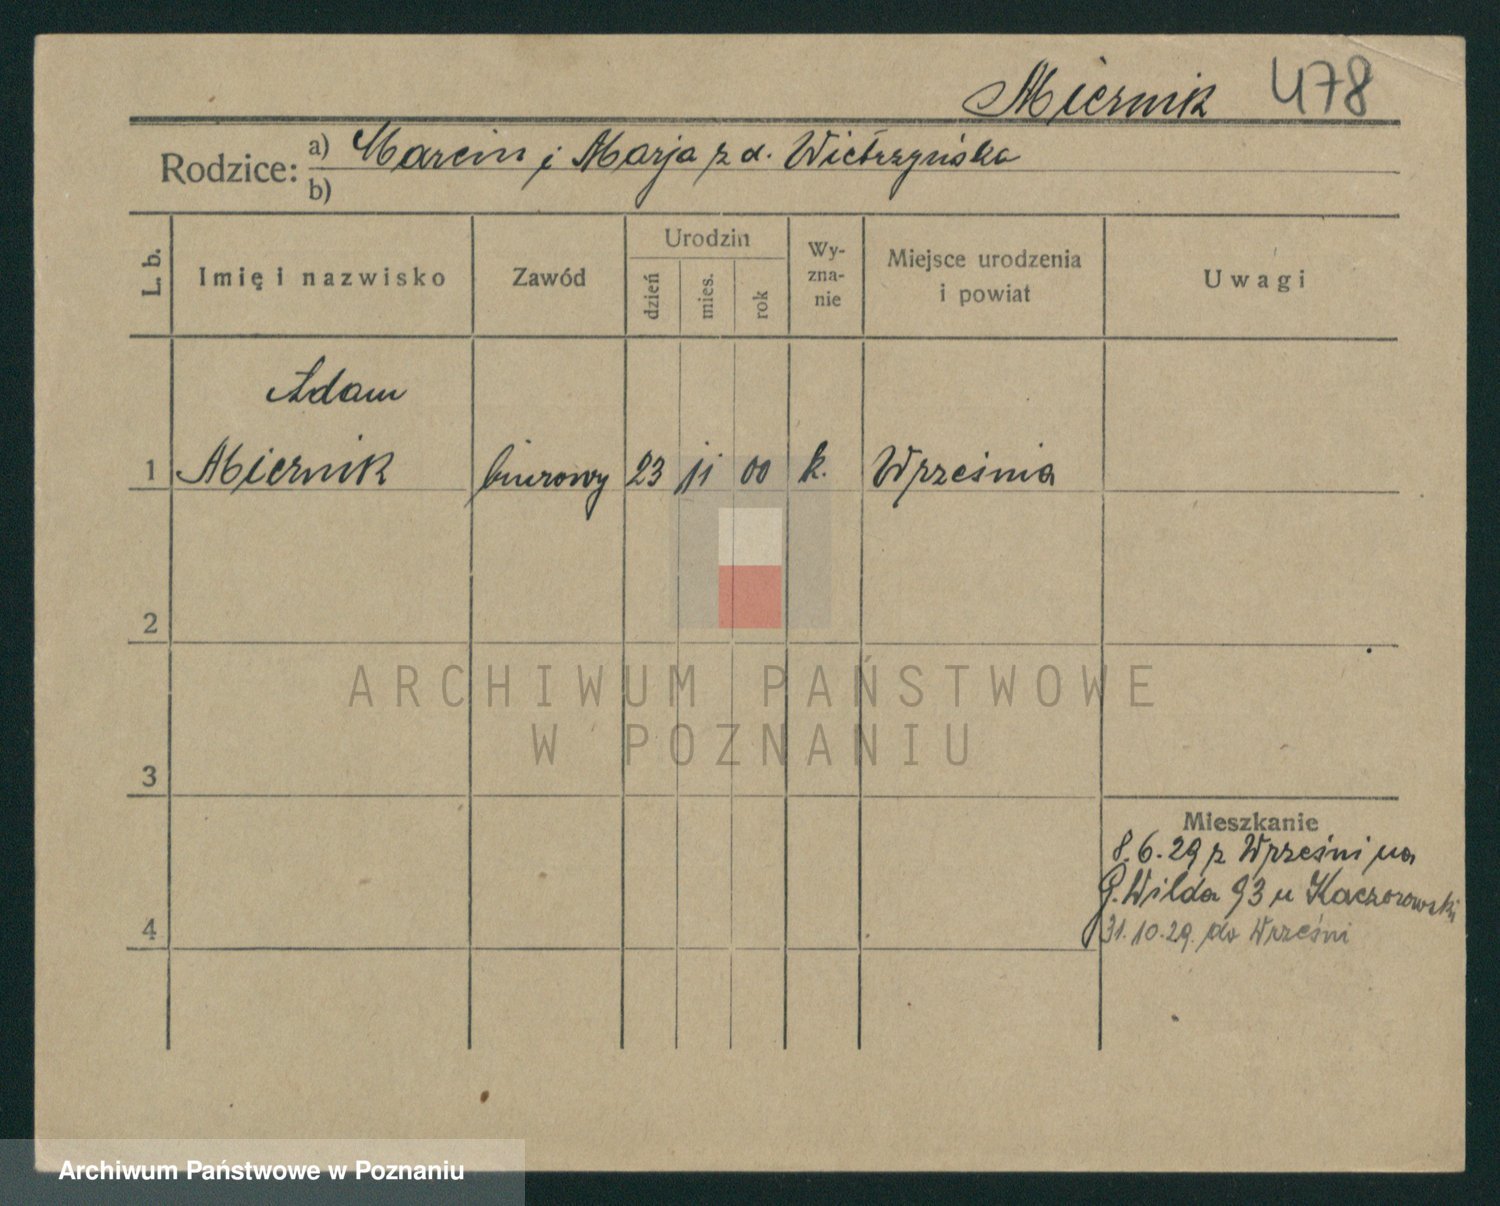 Miernik 478
Rodzice: a) Marcin i Marja z d. Wietrzyńska
b)
L. b.
Imię i nazwisko
Zawód
Urodzin
dzień
mies.
rok
Wy-
zna-
nie
Miejsce urodzenia
i powiat
Uwagi
Adam
1 Miernik biurowy 23 11 00 k. Września
2
3
4
Mieszkanie
8.6.29 z Wrześni na
G. Wilda 93 u Kaczorowski
31.10.29. do Wrześni
ARCHIWUM PAŃSTWOWE
W POZNANIU
Archiwum Państwowe w Poznaniu